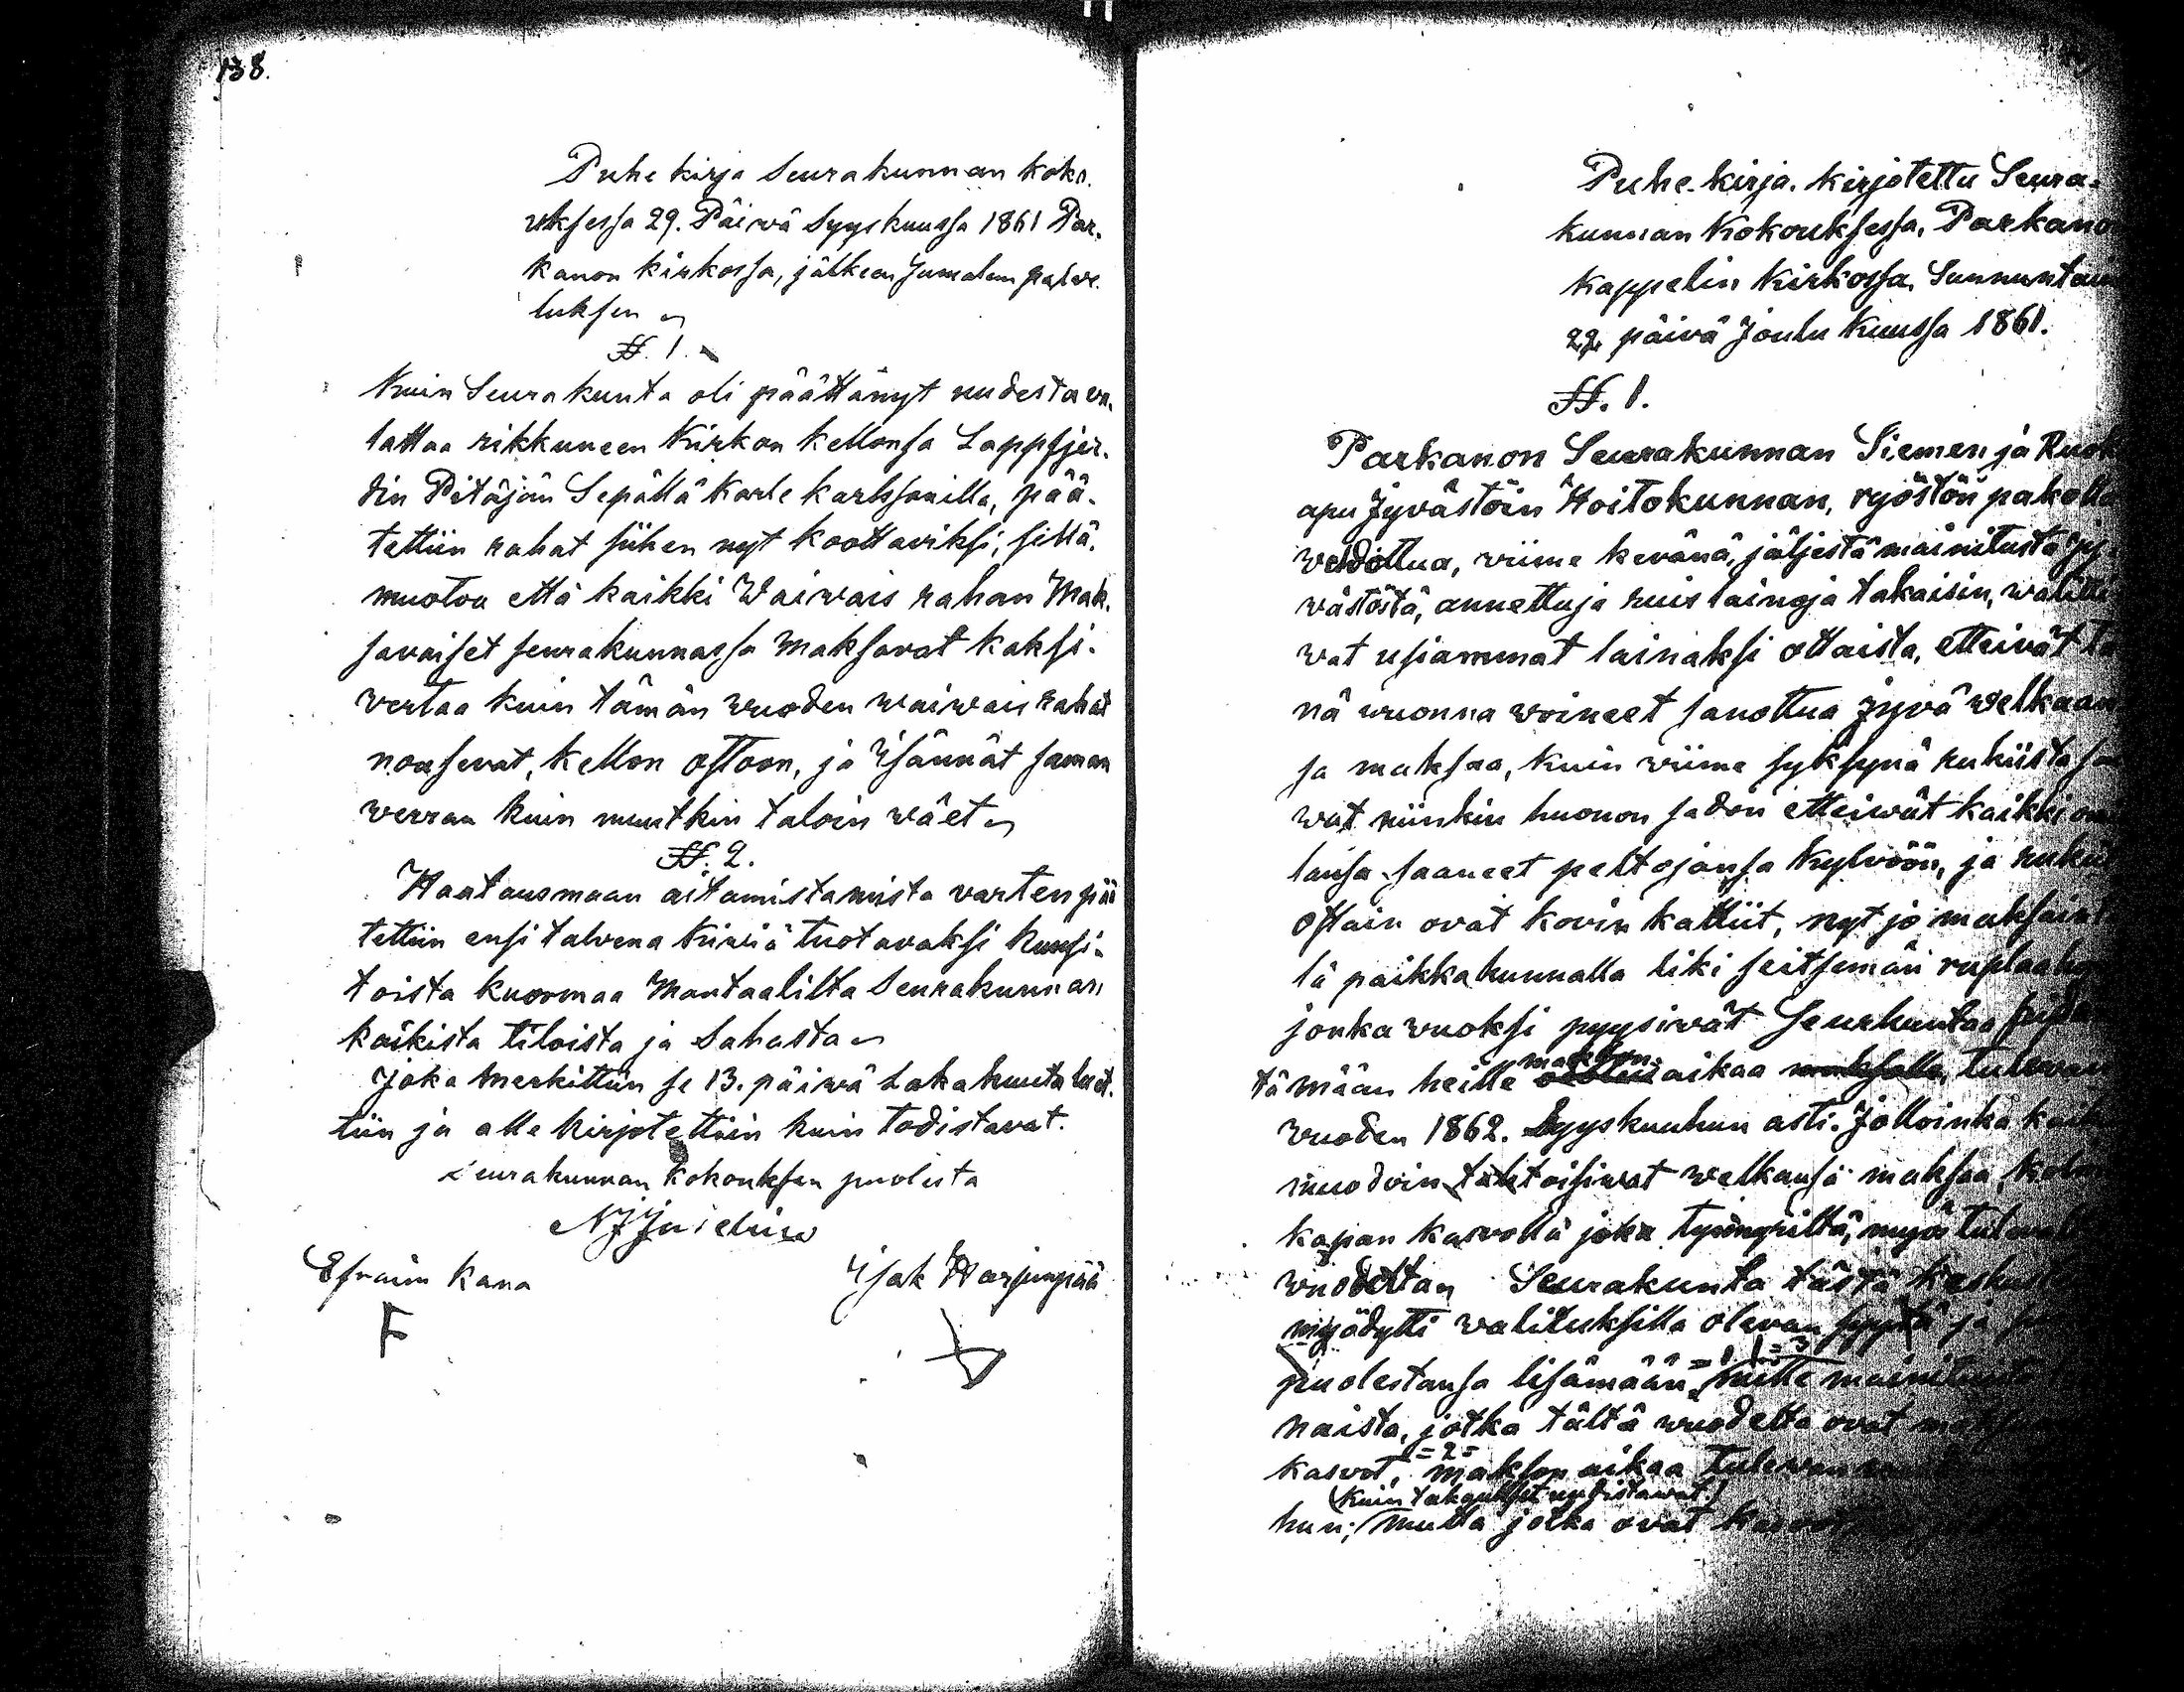 138.
Puhe kirja Seurakunnan koko.
uksessa 29. Päiwä Syyskuussa 1861 Par.
kanon kirkossa, jälkeen Jumalan palwe.
luksen
§§. 1.
Kuin Seurakunta oli päättänyt uudesta va.
lattaa rikkuneen Kirkon kellonsa Lappfjer.
din Pitäjän Sepällä Karle Karlssonilla, pää.
tettiin rahat siihen nyt koottaviksi, sillä.
muotoa että kaikki Waiwais rahan Mak.
savaiset seurakunnassa maksavat kaksi.
vertaa kuin tämän wuoden waiwais rahat
nousevat, kellon ostoon, ja Isännät saman
verran kuin muutkin taloin wäet
§§. 2.
Hautausmaan aitamistamista varten pää
tettiin ensi talvena Kiwiä tuotavaksi kuusi-
toista kuormaa Mantaalilta Seurakunnan
kaikista tiloista ja Sahasta
Joka merkittiin se 13. päiwä Lokakuuta luet.
tiin ja alle kirjotettiin kuin todistavat.
Seurakunnan kokouksen puolesta
Efraim Kana
Isak Harjunpää
Puhe-kirja. kirjotettu Seura-
kunnan Kokouksessa, Parkano
kappelin Kirkossa, Sunnuntain
29. päivä Joulu Kuussa 1861.
§§. 1.
Parkanon Seurakunnan Siemen ja Ruok
apu Jyvästöin Hoitokunnan, ryöstön pakolla
welvottua, viime kevänä, jäljestä mainitusta jy
västöstä, annettuja ruis lainoja takaisin, walitti
wat usiammat lainaksi ottaista, etteivät tä
nä wuonna woineet sanottua Jyvä welkaan
sa maksaa, kuin wiime syksynä rukiista sa
wat niinkin huonon sadon etteiwät kaikki om
lansa saaneet peltojansa Kylvöön, ja rukiit
ostain ovat kovin kalliit, nyt jo maksain
lä paikkakunnalla liki seitsemän ruplaa
jonka wuoksi pyysiwät Seurkuntaa
tämään heille makson aikaa tulevan
wuoden 1862. Syyskuuhun asti. Jolloinka
muodoin tahtoisiwat welkansa maksaa,
kapan kasvolla joka tynnyriltä, myös
wuodelta Seurakunta tästä
myödytti walituksilla olevan syytä ja
puolestansa lisämään
naista, jotka tältä wuodelta ovat
=2=
kasvot, makson aikaa tulevan
hun; mutta jotka ovat